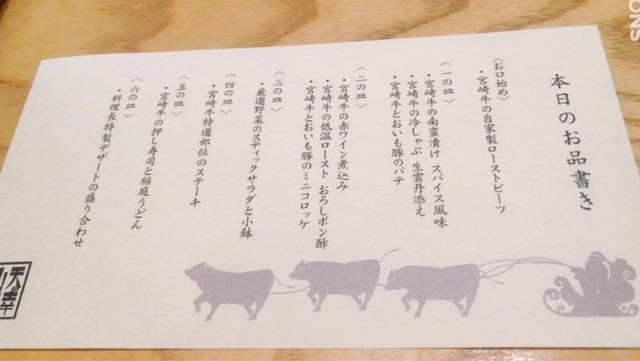 本日のお品書き
〈お口始め〉
・宮崎牛の自家製ローストビーフ
〈一の皿〉
・宮崎牛の南蛮漬け スパイス風味
・宮崎牛の冷しゃぶ 生雲丹添え
・宮崎牛とおいも豚のパテ
〈二の皿〉
・宮崎牛の赤ワイン煮込み
・宮崎牛の低温ロースト おろしポン酢
・宮崎牛とおいも豚のミニコロッケ
〈三の皿〉
・厳選野菜のスティックサラダと小鉢
〈四の皿〉
・宮崎牛特選部位のステーキ
〈五の皿〉
・宮崎牛の押し寿司と稲庭うどん
〈六の皿〉
・料理長特製デザートの盛り合わせ